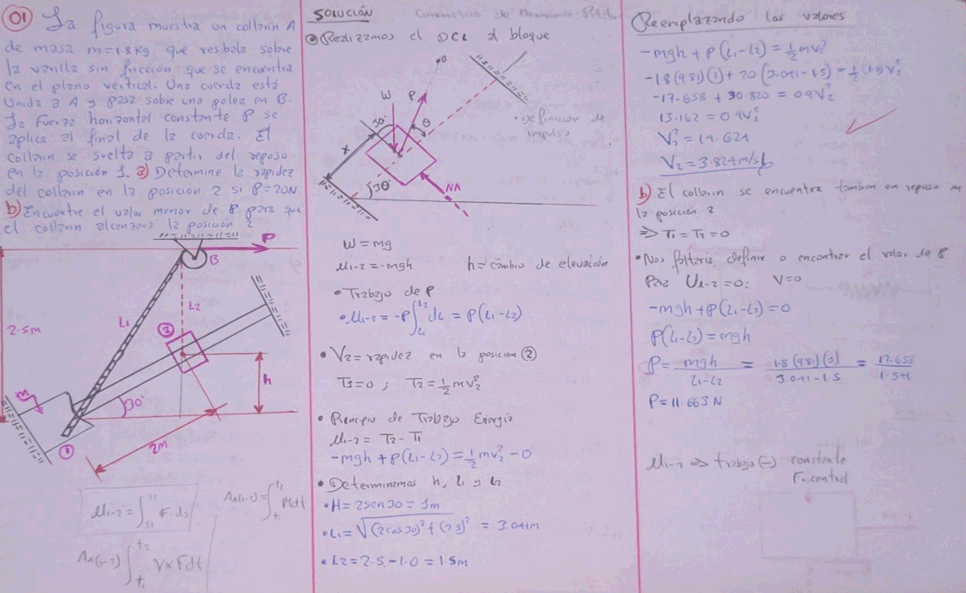 01 La figura muestra un collarin A
de masa m=1.8Kg que resbala sobre
la varilla sin fricción que se encuentra
en el plano vertical. Una cuerda está
Unida a A y pasa sobre una polea en B.
La Fuerza horizontal constante P se
aplica al final de la cuerda. El
collarin se suelta a partir del reposo
en la posición 1. a) Determine la rapidez
del collarin en la posicion 2 si P=20N
b) Encuentre el valor menor de P para que
el collarin alcanza la posición 2
P
B
L1
L2
2
2.5m
h
30°
1
2m
SOLUCIÓN
Realizamos el DCL al bloque
B
W
P
30°
θ
x
30°
NA
• Definición de
impulso
W = mg
U1-2 = -mgh h = cambio de elevación
• Trabajo de P
• U1-2 = -P∫ dL = P(L1-L2)
• V2 = rapidez en la posicion 2
T1=0 ; T2 = 1/2 mv2²
• Principio de Trabajo Energía
U1-2 = T2 - T1
-mgh + P(L1-L2) = 1/2 mv2² - 0
• Determinamos h, L1 y L2
• H = 2sen30 = 1m
• L1 = √(2cos30)² + (2.5)² = 3.041m
• L2 = 2.5 - 1.0 = 1.5m
U1-2 = ∫ F.ds
∫ Mdt
∫ V x Fdt
Reemplazando los valores
-mgh + P(L1-L2) = 1/2 mv2²
-1.8(9.81)(1) + 20(3.041-1.5) = 1/2(1.8)V2²
-17.658 + 30.820 = 0.9V2²
13.162 = 0.9V2²
V2² = 14.624
V2 = 3.824m/s
b) El collarin se encuentra tambien en reposo en
la posición 2
⇒ T1 = T2 = 0
• Nos faltaria definir o encontrar el valor de P
Para U1-2=0; V=0
-mgh + P(L1-L2) = 0
P(L1-L2) = mgh
P = mgh / L1-L2 = 1.8(9.81)(1) / 3.041-1.5 = 17.658 / 1.541
P = 11.463 N
U1-2 ⇒ trabajo (-) constante
F. central